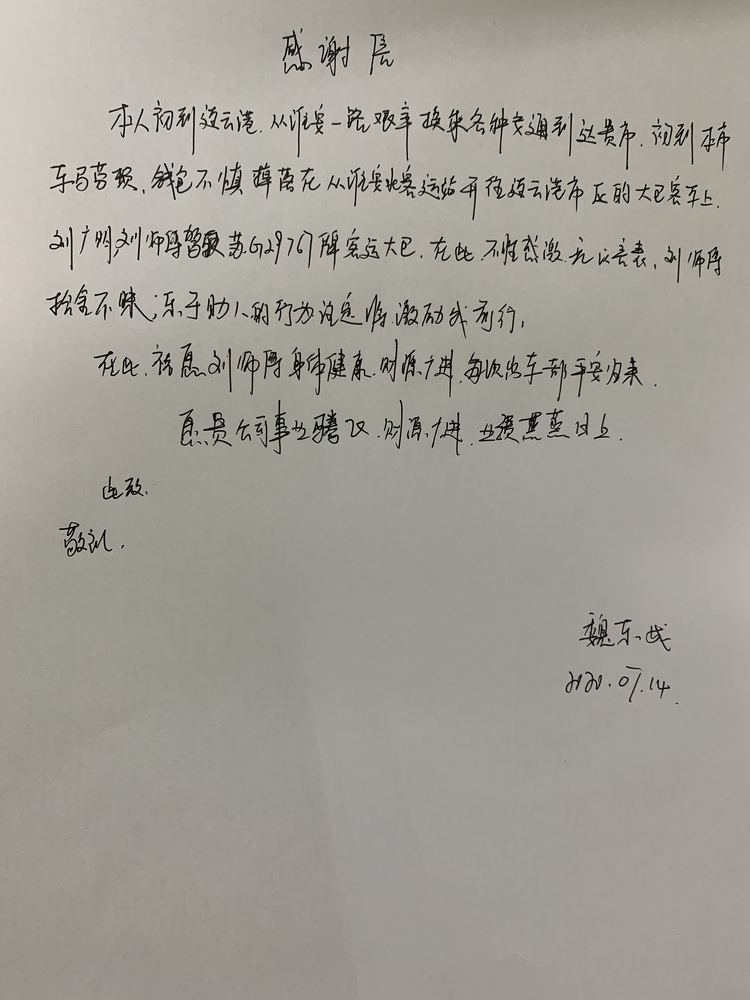 感谢信
本人初到连云港,从淮安一路艰辛换乘各种交通到达贵市,初到本市
车马劳顿,钱包不慎掉落在从淮安北客运站开往连云港市区的大巴客车上.
刘广明,刘师傅驾驶苏G29767牌客运大巴,在此,不胜感激,无以言表,刘师傅
拾金不昧,乐于助人的行为注定将激励我前行,
在此,祝愿刘师傅身体健康,财源广进,每次出车都平安归来.
愿贵公司事业腾飞,财源广进,业绩蒸蒸日上.
此致.
敬礼.
魏东
2020.07.14.